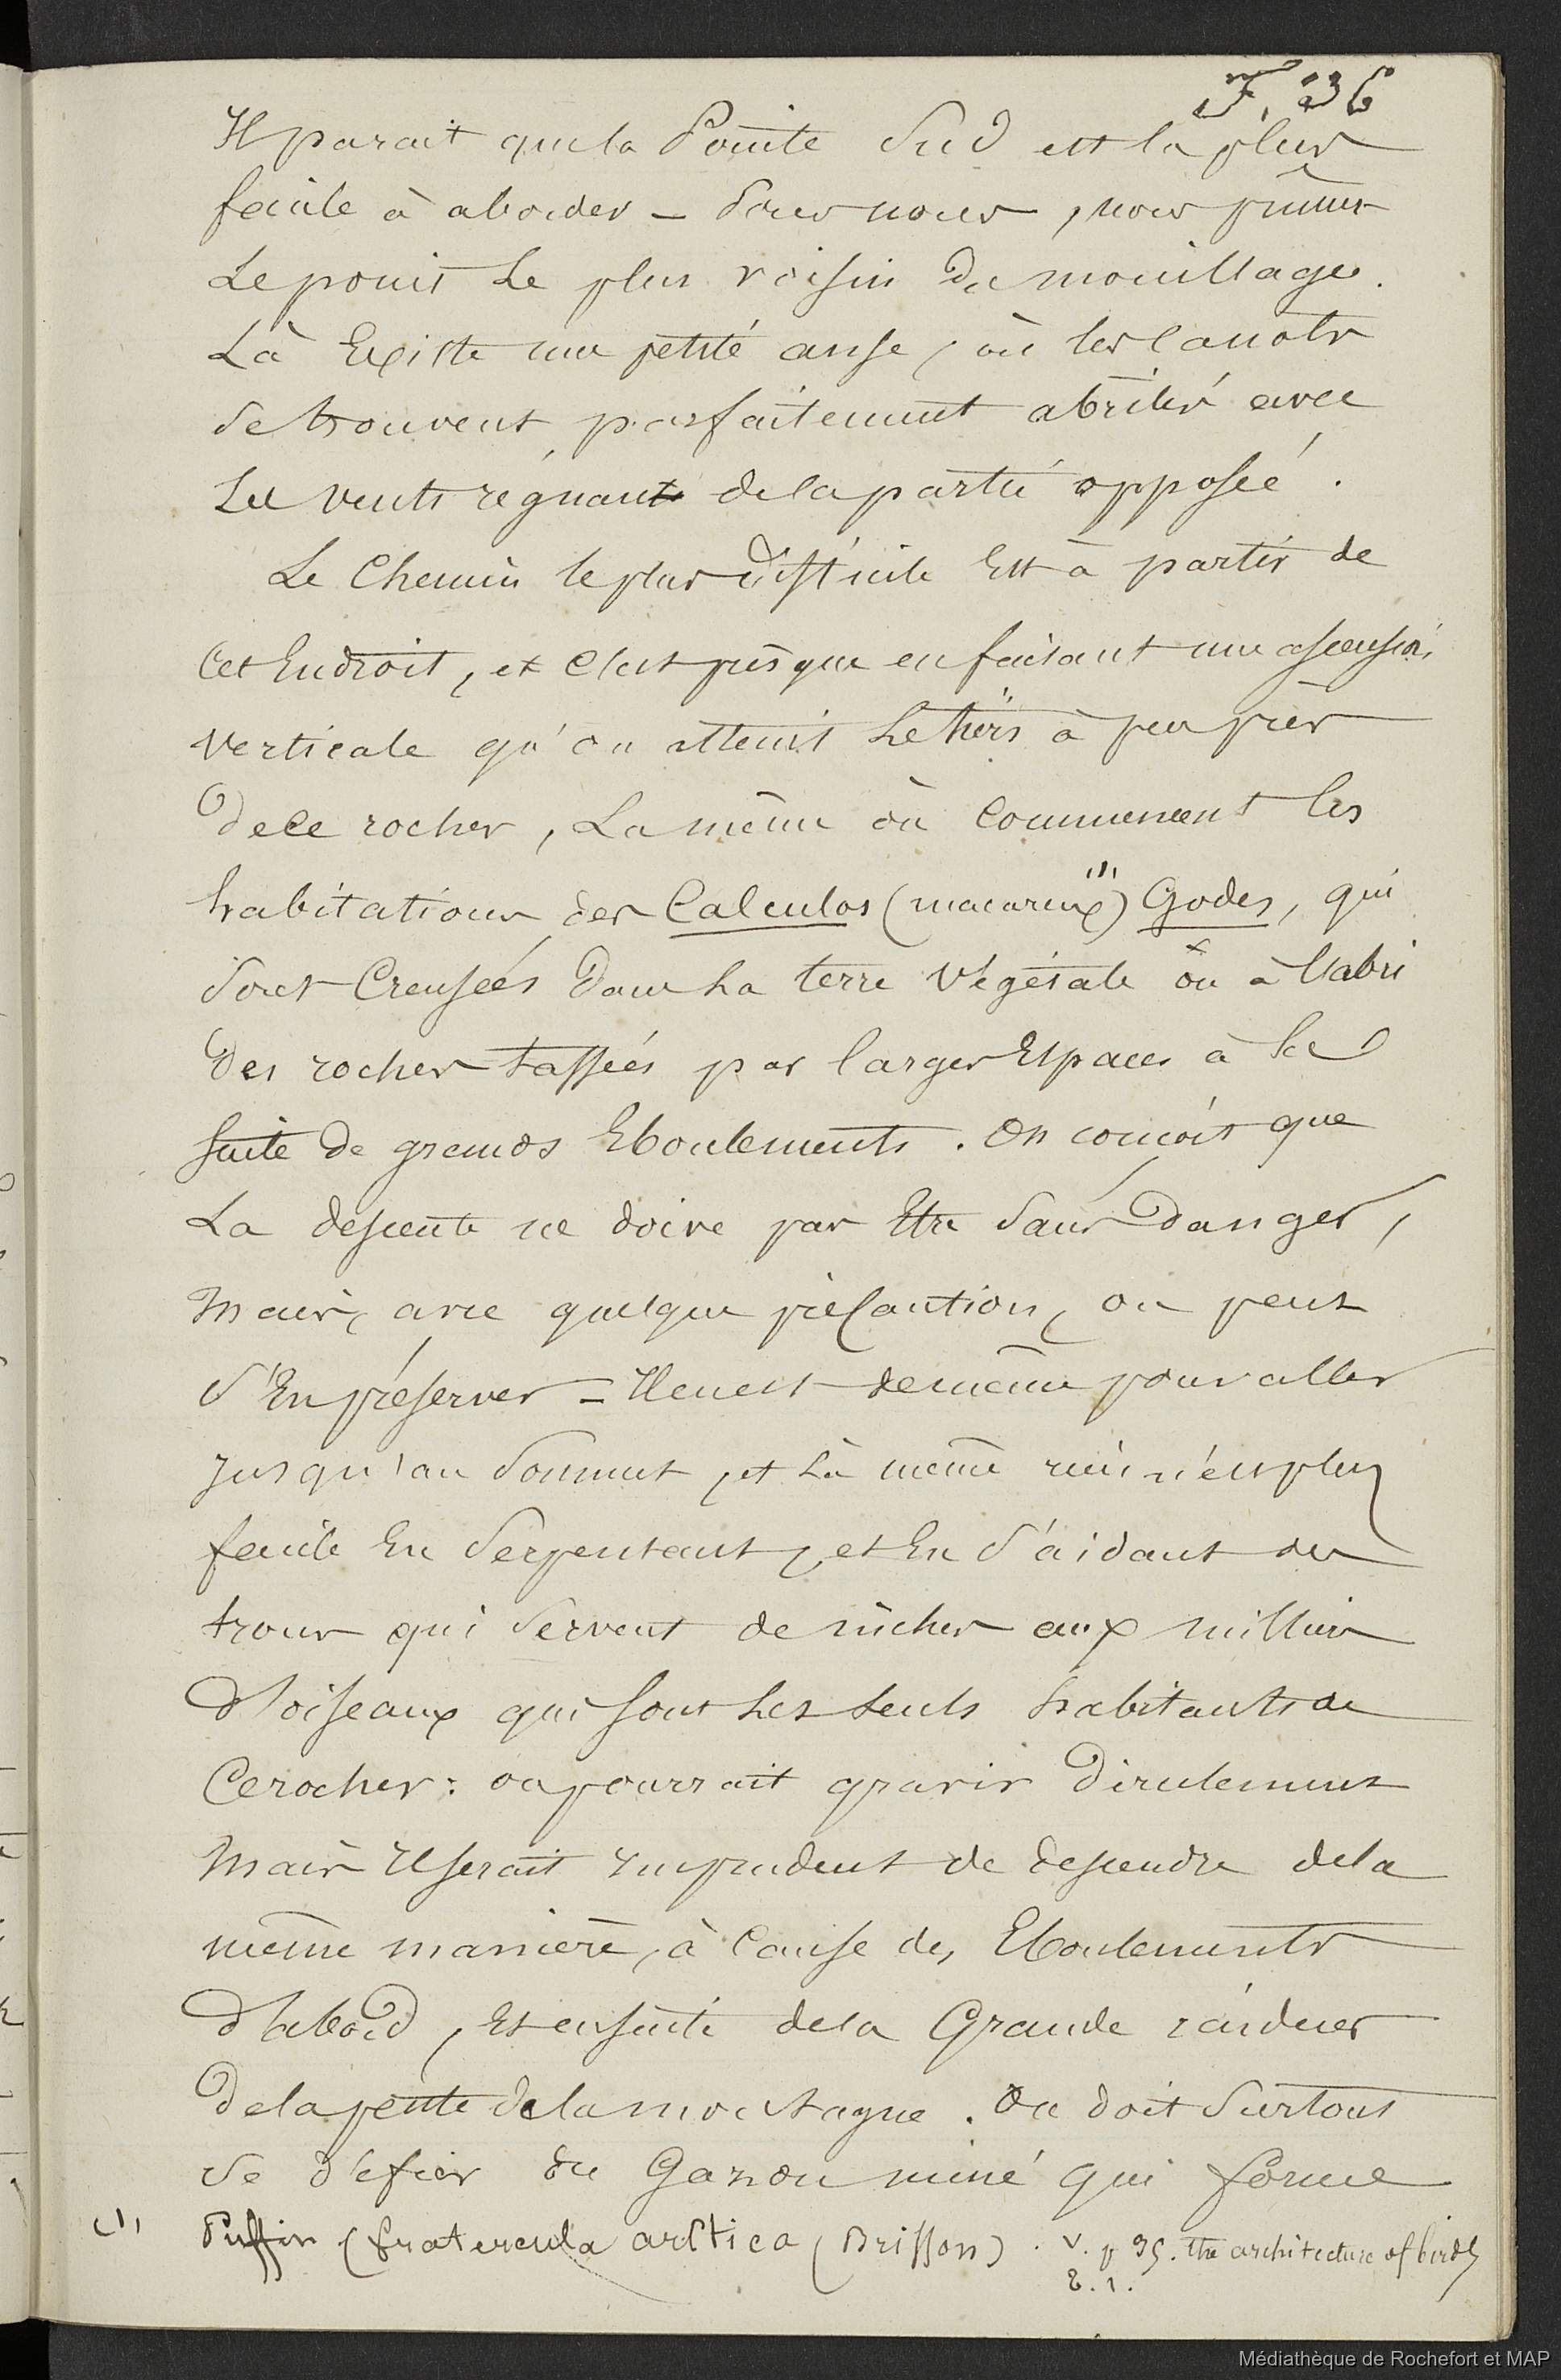 F. 36
Il parait que la Pointe Sud est la plus
facile à aborder - Pour nous, nous prîmes
Le point Le plus voisin du mouillage.
Là Existe une petite anse, où les Canots
se trouvent parfaitement abrités avec
Les vents régnants de la partie opposée.
Le Chemin le plus difficile Est à partir de
Cet Endroit, et C'est presque en faisant une ascension
verticale qu'on atteint Le tiers à peu près
de ce rocher, La même où Commencent les
habitations des Calculos (macareux) (1) Godes, qui
sont Creusées Dans La terre végétale ou à l'abri
Des rochers tassées par larges Espaces à la
suite de grands Eboulements. On conçoit que
La descente ne doive pas Etre sans Danger,
Mais, avec quelque précaution, on peut
s'En préserver = Il en est de même pour aller
Jusqu'au Sommet, et Là même rien n'est plus
facile En Serpentant, et En s'aidant des
trous qui servent de niches aux milliers
d'oiseaux qui sont Les seuls habitants de
Ce rocher: on pourrait gravir Directement
Mais Il serait Imprudent de descendre de la
même manière, à Cause des Eboulements
D'abord, Et ensuite de la Grande raideur
De la pente de la montagne. On doit Surtout
se défier du Gazon miné qui forme
(1) Puffin (fratercula arctica (Brisson). V. p 35. the architecture of birds